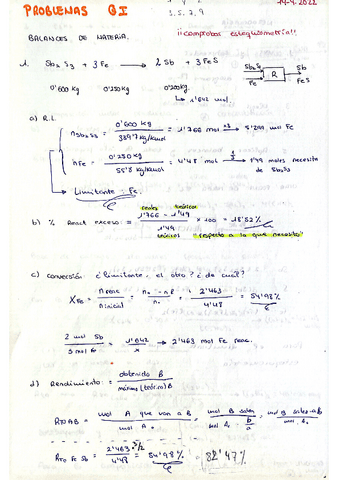 PROBLEMAS GI
1.5.7.9
19-9-2022
BALANCES DE MATERIA.
¡¡comprobar estequiometria!!
1. Sb2S3 + 3Fe → 2Sb + 3FeS
Sb2S3 Fe R Sb FeS
0'600 kg 0'250kg 0'200kg
↳ 1'642 mol.
a) R.L.
nSb2S3 = 0'600 kg / 339'7 kg/kmol = 1'766 mol → 5'299 mol Fe
nFe = 0'250 kg / 55'8 kg/kmol = 4'48 mol → 1'49 moles necesita de Sb2S3
Limitante: Fe.
reales teóricos
b) % React exceso = 1'766 - 1'49 / 1'49 × 100 = 18'52%
teóricos "respecto a lo que necesito"
c) conversión ¿limitante, el otro? ¿de cuál?
XFe = n reac / n inicial = no - nR / no = 2'463 / 4'48 = 54'98%
2 mol Sb / 3 mol Fe = 1'642 / x → 2'463 mol Fe reac.
d) Rendimiento = obtenido B / máximo (teórico) B
RTO AB = mol A que van a B / mol A0
RTO Fe Sb = 2'463 / 4'48 = 54'98% 82'47%